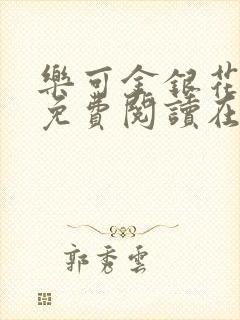 樂可金銀花
免費閱讀在
郭秀雲